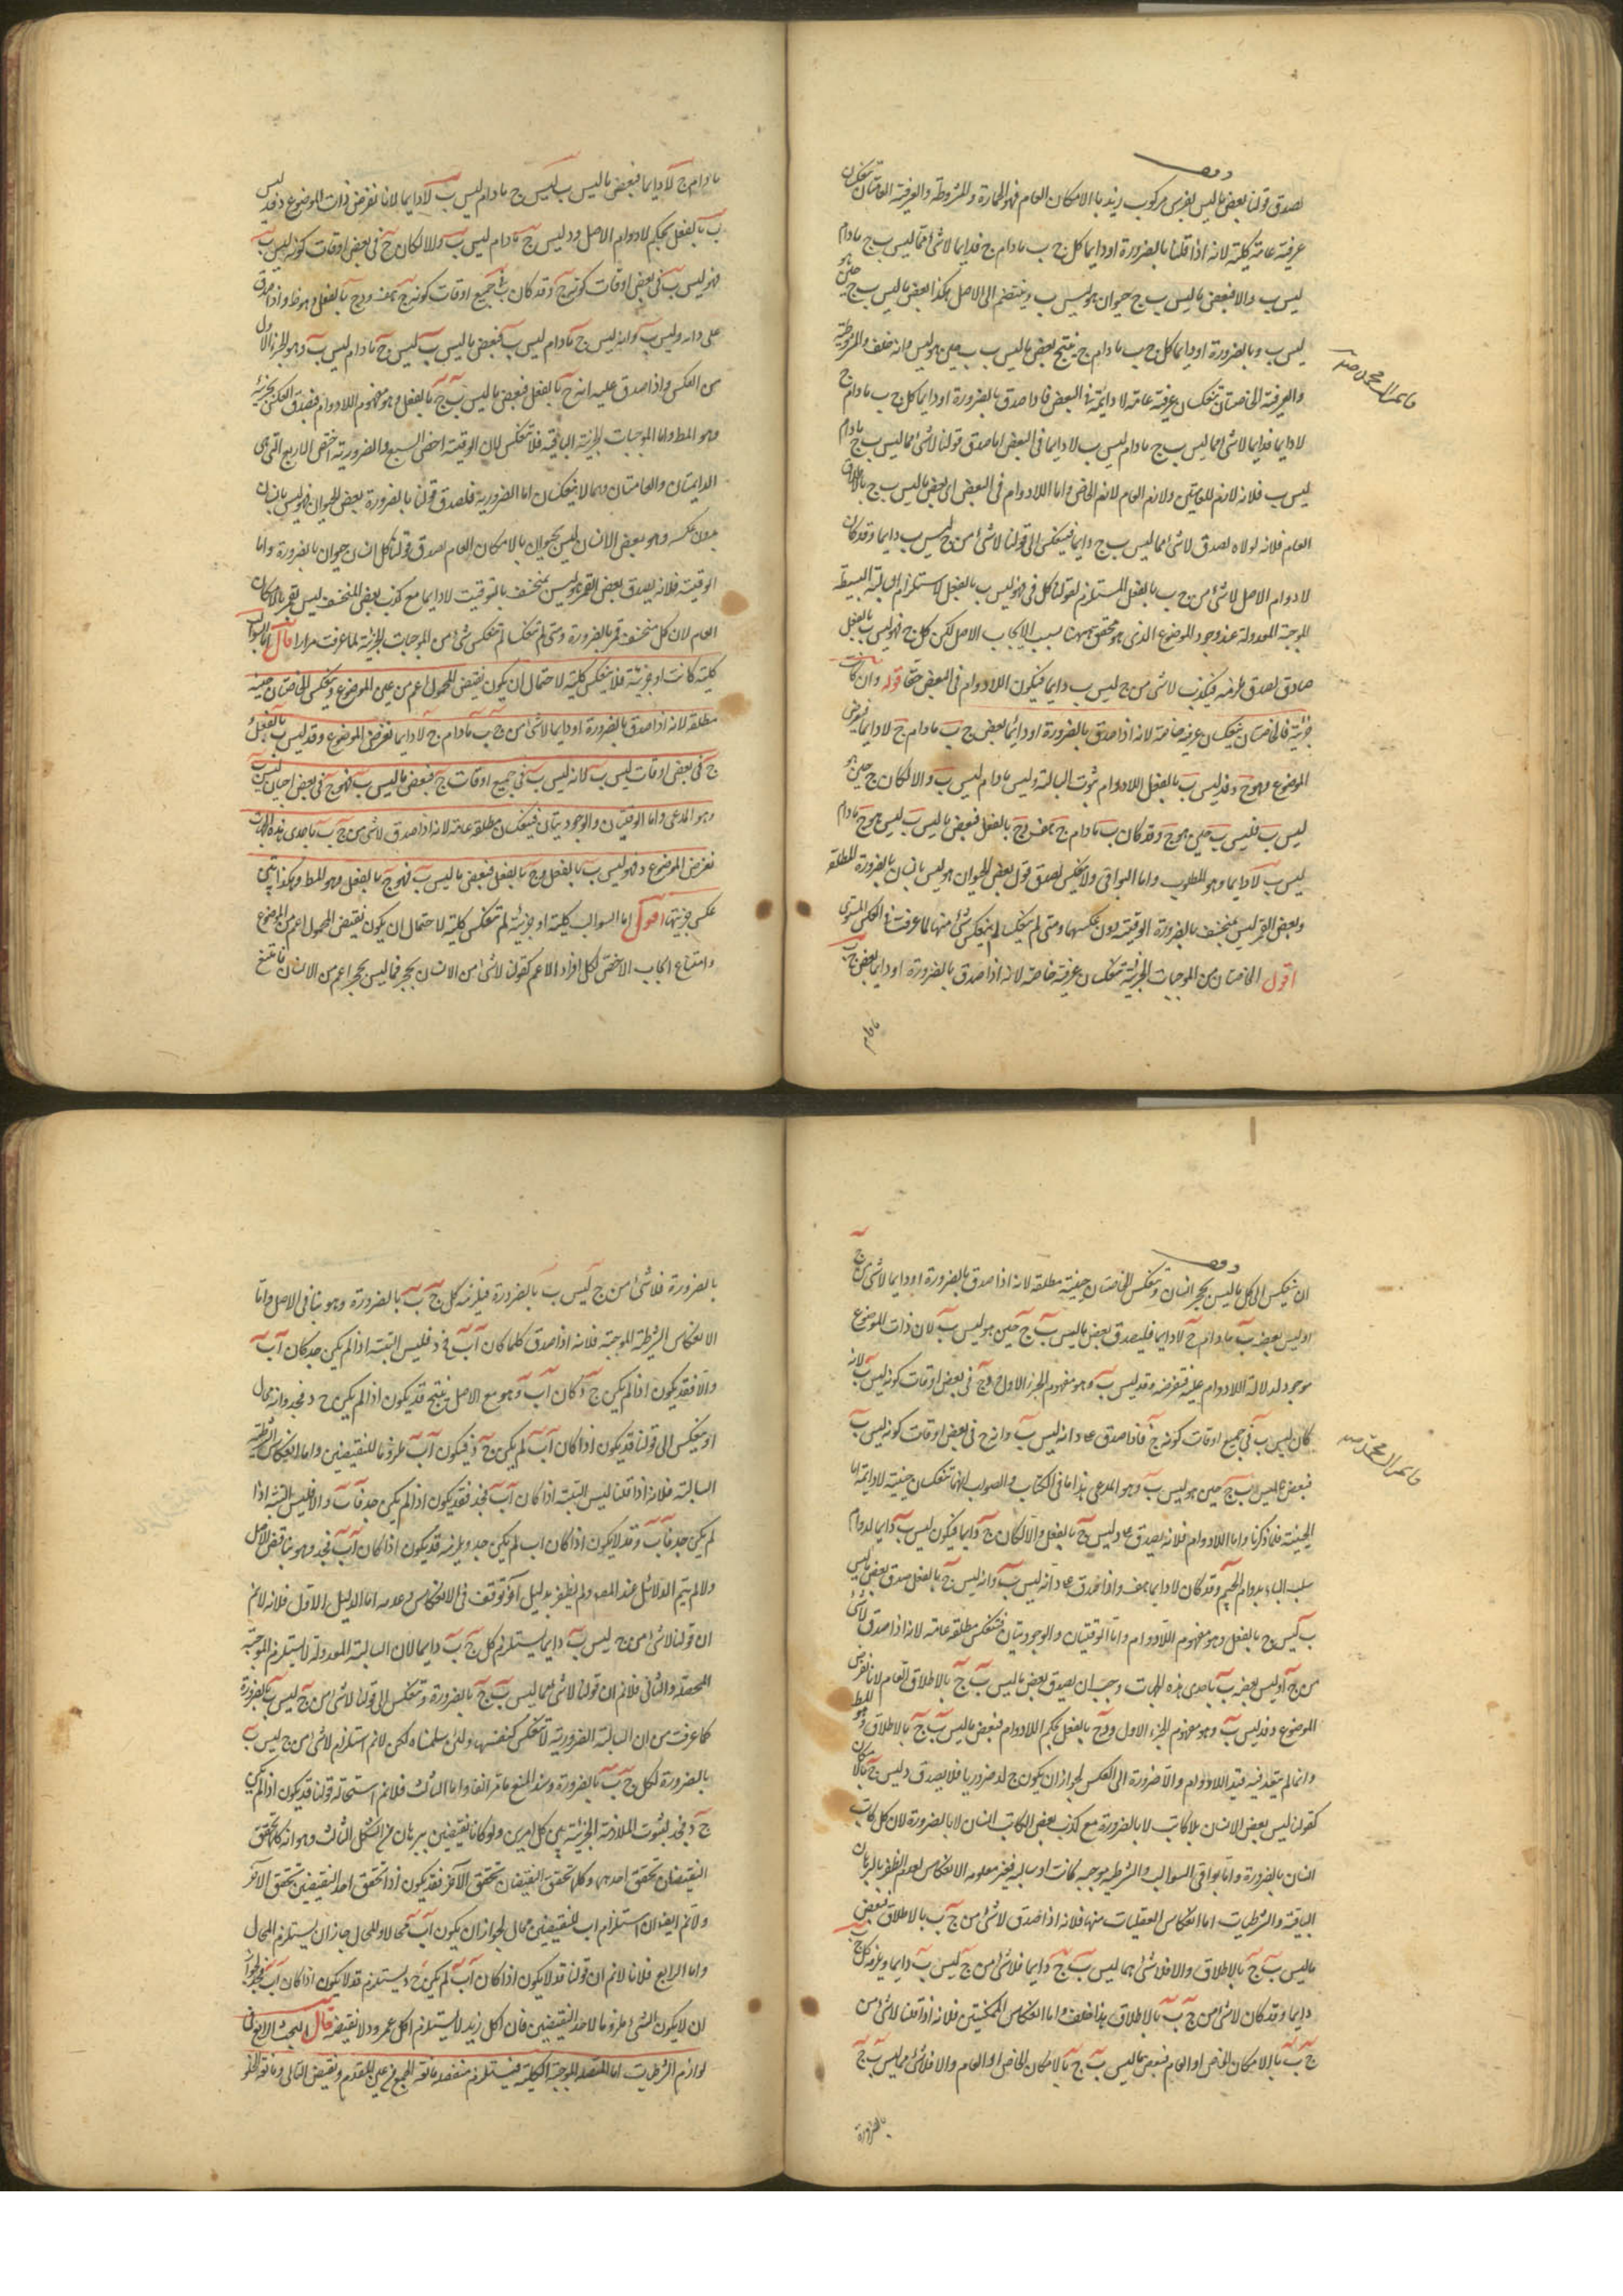 وقف
لصدق قولنا بعض ما ليس بفرس مركوب زيد بالامكان العام فهو الحمارة والمشروطة والعرفية العامتان تنعكسان
عرفية عامة كلية لانه اذا قلنا بالضرورة او دايما كل ج ب مادام ج فدايما لا شئ مما ليس ب ج مادام
ليس ب والا فبعض ما ليس ب ج حين هو ليس ب وينضم الى الاصل هكذا بعض ما ليس ب ج حين هو
ليس ب وبالضرورة او دايما كل ج ب مادام ج ينتج بعض ما ليس ب ب حين هو ليس وانه خلف والمشروطة
والعرفية الخاصتان تنعكسان عرفية عامة لا دائمة في البعض فاذا صدق بالضرورة او دايما كل ج ب مادام ج
لا دايما فدايما لا شئ مما ليس ب ج مادام ليس ب لا دايما في البعض اما صدق قولنا لا شئ مما ليس ب ج مادام
ليس ب فلانه لازم للعامتين ولازم العام لازم الخاص واما اللادوام في البعض اى بعض ما ليس ب ج بالاطلاق
العام فلانه لولاه لصدق لا شئ مما ليس ب ج دايما فينعكس الى قولنا لا شئ من ج ليس ب دايما وقد كان
لادوام الاصل لا شئ من ج ب بالفعل المستلزم لقولنا كل ج فهو ليس ب بالفعل لاستلزام السالبة البسيطة
الموجبة المعدولة عند وجود الموضوع الذى هو محقق ههنا بسبب الايجاب الاصل لكن كل ج فهو ليس ب بالفعل
صادق لصدق ملزمه فيكذب لا شئ من ج ليس ب دايما فيكون اللادوام في البعض حقا قوله وان كانت
جزئية فالخاصتان تنعكسان عرفية خاصة لانه اذا صدق بالضرورة او دائما بعض ج ب مادام ج لا دايما نفرض
الموضوع وهو ج د فد ليس ب بالفعل اللادوام ثبوت السالبة وليس مادام ليس ب والا لكان ج حين هو
ليس ب فليس ب حين هو ج وقد كان ب مادام ج هف ود ج بالفعل فبعض ما ليس ب ليس هو ج مادام
ليس ب لا دايما وهو المطلوب واما البواقى ولا تنعكس لصدق قول بعض الحيوان هو ليس بانسان بالضرورة المطلقة
وبعض القمر ليس بمنخسف بالضرورة الوقتية دون عكسها ومتى لم تنعكسا لم ينعكس شئ منها لما عرفت في العكس المستوى
اقول الخاصتان من الموجبات الجزئية تنعكسان عرفية خاصة لانه اذا صدق بالضرورة او دايما بعض ج ب
مادام
مادام ج لا دايما فبعض ما ليس ب ليس ج مادام ليس ب لا دايما لانا نفرض ذات الموضوع د فد ليس
ب بالفعل بحكم لادوام الاصل ود ليس ج مادام ليس ب والا لكان ج في بعض اوقات كونه ليس ب
فهو ليس ب في بعض اوقات كونه ج وقد كان ب في جميع اوقات كونه ج هف ود ج بالفعل وهو ظ واذا صدق
على د انه ليس ب وانه ليس ج مادام ليس ب فبعض ما ليس ب ليس ج مادام ليس ب وهو الجزء الاول
من العكس واذا صدق عليه انه ج بالفعل فبعض ما ليس ب ج بالفعل وهو مفهوم اللادوام فصدق العكس بجزئيه
وهو المط واما الموجبات الجزئية الباقية فلا تنعكس لان الوقتية اخص السبع والضرورية اخص الاربع التى هى
الدايمتان والعامتان وهما لا ينعكسان اما الضرورية فلصدق قولنا بالضرورة بعض الحيوان هو ليس بانسان
بدون عكسه وهو بعض الانسان ليس بحيوان بالامكان العام لصدق قولنا كل انسان حيوان بالضرورة واما
الوقتية فلانه يصدق بعض القمر هو ليس بمنخسف بالتوقيت لا دايما مع كذب بعض المنخسف ليس بقمر بالامكان
العام لان كل منخسف قمر بالضرورة ومتى لم تنعكسا لم تنعكس شئ من الموجبات الجزئية لما عرفت مرارا قال اما السوالب
كلية كانت او جزئية فلا ينعكس كلية لاحتمال ان يكون نقيض المحمول اعم من عين الموضوع وتنعكس الخاصتان حينية
مطلقة لانه اذا صدق بالضرورة او دايما لا شئ من ج ب مادام ج لا دايما نفرض الموضوع د فد ليس ب بالفعل و
ج في بعض اوقات ليس ب لانه ليس ب في جميع اوقات ج فبعض ما ليس ب فهو ج في بعض احيان ليس ب
وهو المدعى واما الوقتيتان والوجوديتان فتنعكسان مطلقة عامة لانه اذا صدق لا شئ من ج ب باحدى هذه الجهات
نفرض الموضوع د فهو ليس ب بالفعل وج بالفعل فبعض ما ليس ب فهو ج بالفعل وهو المط وهكذا يتبين
عكس جزئيتها اقول اما السوالب كلية او جزئية لم تنعكس كلية لاحتمال ان يكون نقيض المحمول اعم من الموضوع
وامتناع ايجاب الاخص لكل افراد الاعم كقولنا لا شئ من الانسان بحجر فما ليس بحجر اعم من الانسان فامتنع
وقف
ان ينعكس الى كل ما ليس بحجر انسان وتنعكس الخاصتان حينية مطلقة لانه اذا صدق بالضرورة او دايما لا شئ من ج
او ليس بعضه ب مادام ج لا دايما فليصدق بعض ما ليس ب ج حين هو ليس ب لان ذات الموضوع
موجود لدلالة اللادوام عليه فنفرضه د فد ليس ب وهو مفهوم الجزء الاول وج في بعض اوقات كونه ليس ب لانه
كان ليس ب في جميع اوقات كونه ج فاذا صدق على د انه ليس ب وانه ج في بعض اوقات كونه ليس ب
فبعض ما ليس ب ج حين هو ليس ب وهو المدعى هذا ما في الكتاب والصواب انهما تنعكسان حينية لا دائمة اما
الحينية فلما ذكرنا واما اللادوام فلانه يصدق على د ليس ج بالفعل والا لكان ج دايما فيكون ليس ب دايما لدوام
سلب الباء بدوام الجيم وقد كان لا دايما هف واذا صدق على د انه ليس ب وانه ليس ج بالفعل صدق بعض ما ليس
ب ليس ج بالفعل وهو مفهوم اللادوام واما الوقتيتان والوجوديتان فتنعكس مطلقة عامة لانه اذا صدق لا شئ
من ج او ليس بعضه ب باحدى هذه الجهات وجب ان يصدق بعض ما ليس ب ج بالاطلاق العام لانا نفرض
الموضوع د فد ليس ب وهو مفهوم الجزء الاول ود ج بالفعل بحكم اللادوام فبعض ما ليس ب ج بالاطلاق وهو المط
وانما لم يتعد فيه قيد اللادوام واللاضرورة الى العكس لجواز ان يكون ج لد ضروريا فلا يصدق د ليس ج بالامكان
كقولنا ليس بعض الانسان بلا كاتب لا بالضرورة مع كذب بعض الكاتب انسان لا بالضرورة لان كل كاتب
انسان بالضرورة واما بواقى السوالب والشرطية موجبة كانت او سالبة فغير معلومة الانعكاس لعدم الظفر بالبرهان
الباقية والشرطيات اما انعكاس الفعليات منها فلانه اذا صدق لا شئ من ج ب بالاطلاق فبعض
ما ليس ب ج بالاطلاق والا فلا شئ مما ليس ب ج دايما فلا شئ من ج ليس ب دايما ويلزمه كل ج ب
دايما وقد كان لا شئ من ج ب بالاطلاق هذا خلف واما انعكاس الممكنتين فلانه اذا قلنا لا شئ من
ج ب بالامكان الخاص او العام فبعض ما ليس ب ج بالامكان الخاص او العام والا فلا شئ مما ليس ب ج
بالضرورة
بالضرورة فلا شئ من ج ليس ب بالضرورة فيلزمه كل ج ب بالضرورة وهو ينافى الاصل واما
الانعكاس الشرطية الموجبة فلانه اذا صدق كلما كان اب فج د فليس البتة اذا لم يكن ج د كان اب
والا فقد يكون اذا لم يكن ج د كان اب وهو مع الاصل ينتج قد يكون اذا لم يكن ج د فجد وانه محال
او ينعكس الى قولنا قد يكون اذا كان اب لم يكن ج د فيكون اب ملزوما للنقيضين واما انعكاس الشرطية
السالبة فلانه اذا قلنا ليس البتة اذا كان اب فجد فقد يكون اذا لم يكن جد فاب والا فليس البتة اذا
لم يكن جد فاب وقد لا يكون اذا كان اب لم يكن جد ويلزمه قد يكون اذا كان اب فجد وهو يناقض الاصل
ولما لم يتم الدلائل عند المص ولم يظفر بدليل آخر توقف في الانعكاس وعدمه اما الدليل الاول فلانه لا نم
ان قولنا لا شئ من ج ليس ب دايما يستلزم كل ج ب دايما لان السالبة المعدولة لا تستلزم الموجبة
المحصلة والثانى فلا نم ان قولنا لا شئ مما ليس ب ج بالضرورة وتنعكس الى قولنا لا شئ من ج ليس ب بالضرورة
كما عرفت من ان السالبة الضرورية لا تنعكس كنفسها ولئن سلمناه لكن لا نم استلزام لا شئ من ج ليس ب
بالضرورة لكل ج ب بالضرورة وسند المنع ما مر انفا واما الثالث فلا نم استحالة قولنا قد يكون اذا لم يكن
ج د فجد لثبوت الملازمة الجزئية بين كل امرين ولو كانا نقيضين ببرهان من الشكل الثالث وهو انه كلما تحقق
النقيضان تحقق احدهما وكلما تحقق النقيضان تحقق الآخر فقد يكون اذا تحقق احد النقيضين تحقق الآخر
ولا نم ايضا ان استلزام اب للنقيضين محال لجواز ان يكون اب محالا والمحال جاز ان يستلزم المحال
واما الرابع فلانا لا نم ان قولنا قد لا يكون اذا كان اب لم يكن ج د يستلزم قد لا يكون اذا كان اب فجد لجواز
ان لا يكون الشئ ملزوما لاحد النقيضين فان اكل زيد لا يستلزم اكل عمرو ولا نقيضه قال البحث الرابع فى
لوازم الشرطيات اما المتصلة الموجبة الكلية فيستلزم منفصلة مانعة الجمع من عين المقدم ونقيض التالى ومانعة الخلو